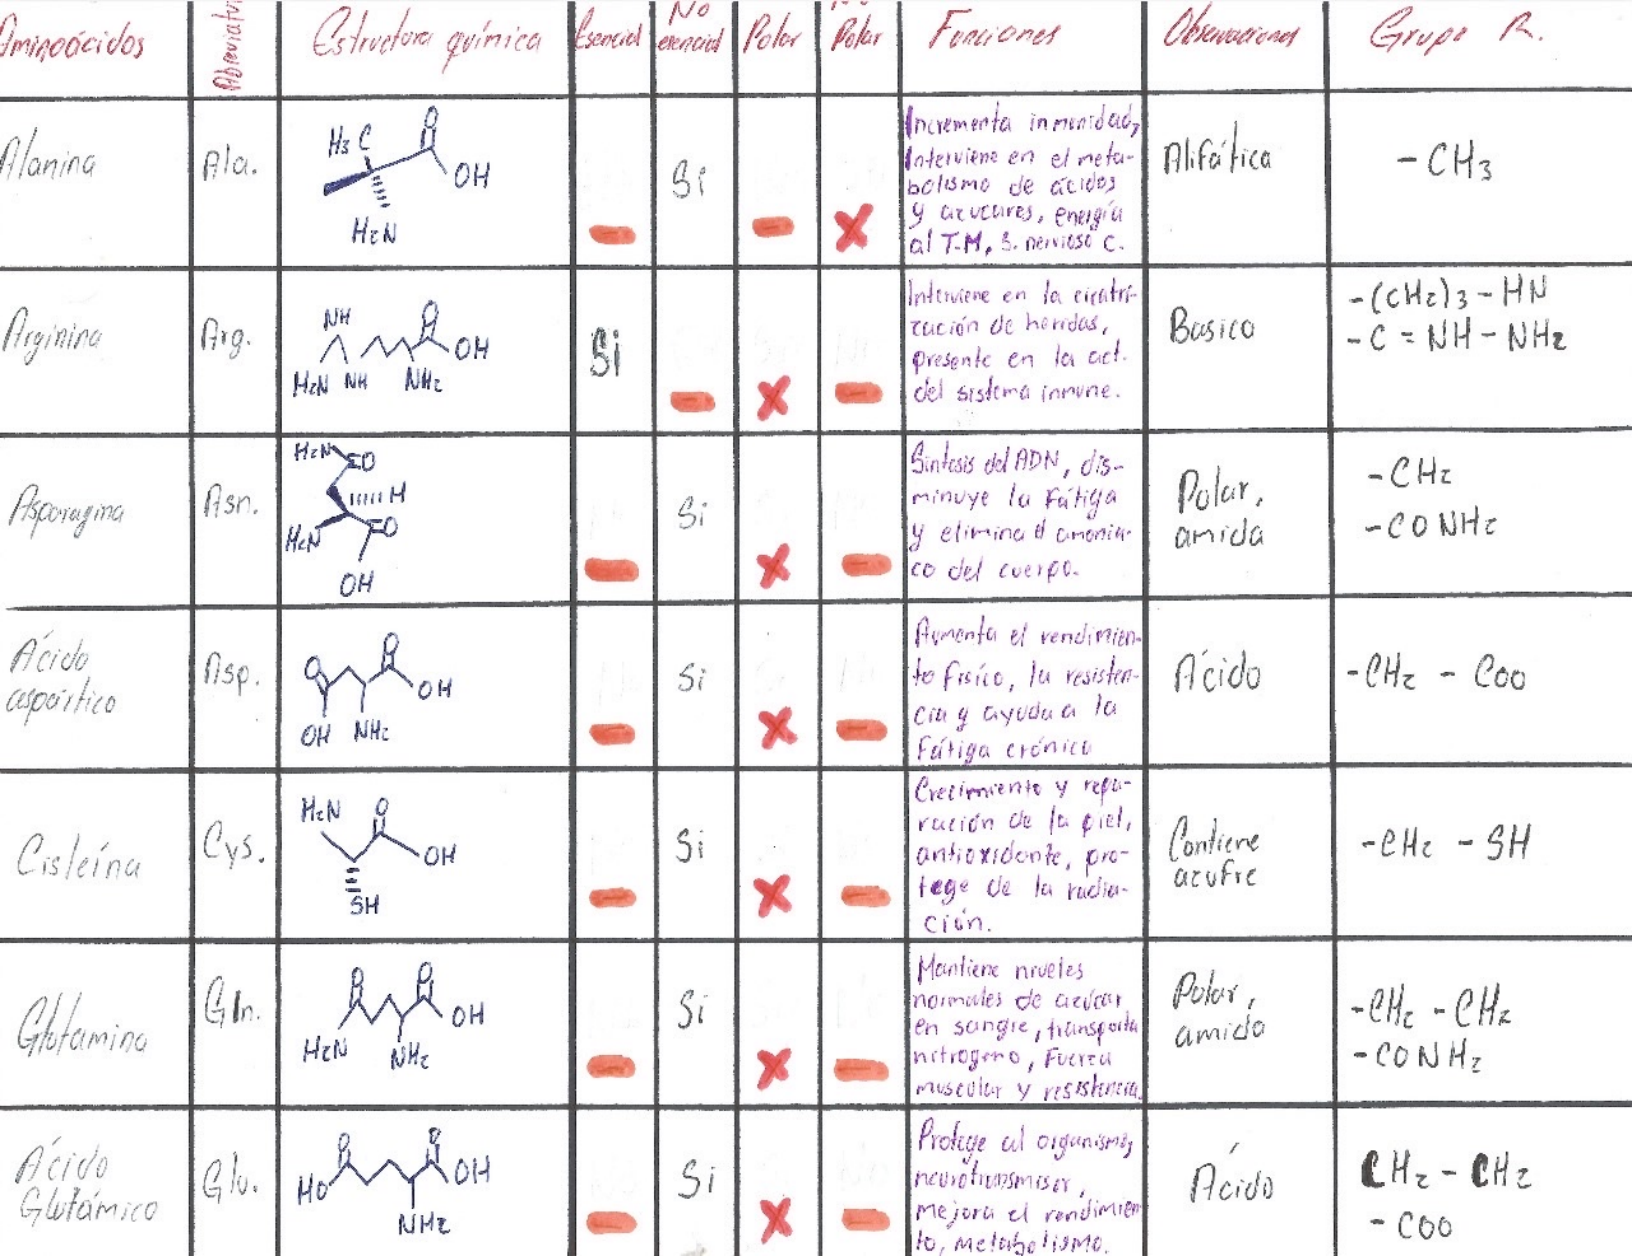 Aminoácidos
Abreviatura
Estructura química
Esencial
No
esencial
Polar
No
Polar
Funciones
Observaciones
Grupo R.
Alanina
Ala.
H3C
O
OH
H2N
Si
Incrementa inmunidad,
Interviene en el meta-
bolismo de ácidos
y azucares, energía
al T.M, S. nervioso C.
Alifática
-CH3
Arginina
Arg.
NH
O
OH
H2N NH NH2
Si
Interviene en la cicatri-
zación de heridas,
presente en la act.
del sistema inmune.
Basico
-(CH2)3-HN
-C=NH-NH2
Asparagina
Asn.
H2N
O
H
H2N
O
OH
Si
Sintesis del ADN, dis-
minuye la fátiga
y elimina el amonia-
co del cuerpo.
Polar,
amida
-CH2
-CONH2
Ácido
aspártico
Asp.
O
O
OH
OH NH2
Si
Aumenta el rendimien-
to fisíco, la resisten-
cia y ayuda a la
Fátiga crónica
Ácido
-CH2 - COO
Cisteína
Cys.
H2N
O
OH
SH
Si
Crecimiento y repa-
ración de la piel,
antioxidante, pro-
tege de la radia-
ción.
Contiene
azufre
-CH2 -SH
Glutamina
Gln.
O
O
OH
H2N
NH2
Si
Mantiene niveles
normales de azúcar
en sangre, transporta
nitrogeno, Fuerza
muscular y resistencia.
Polar,
amida
-CH2 -CH2
-CONH2
Ácido
Glutámico
Glu.
O
O
HO
OH
NH2
Si
Protege al organismo,
neurotransmisor,
mejora el rendimien
to, metabolismo.
Ácido
CH2-CH2
-COO